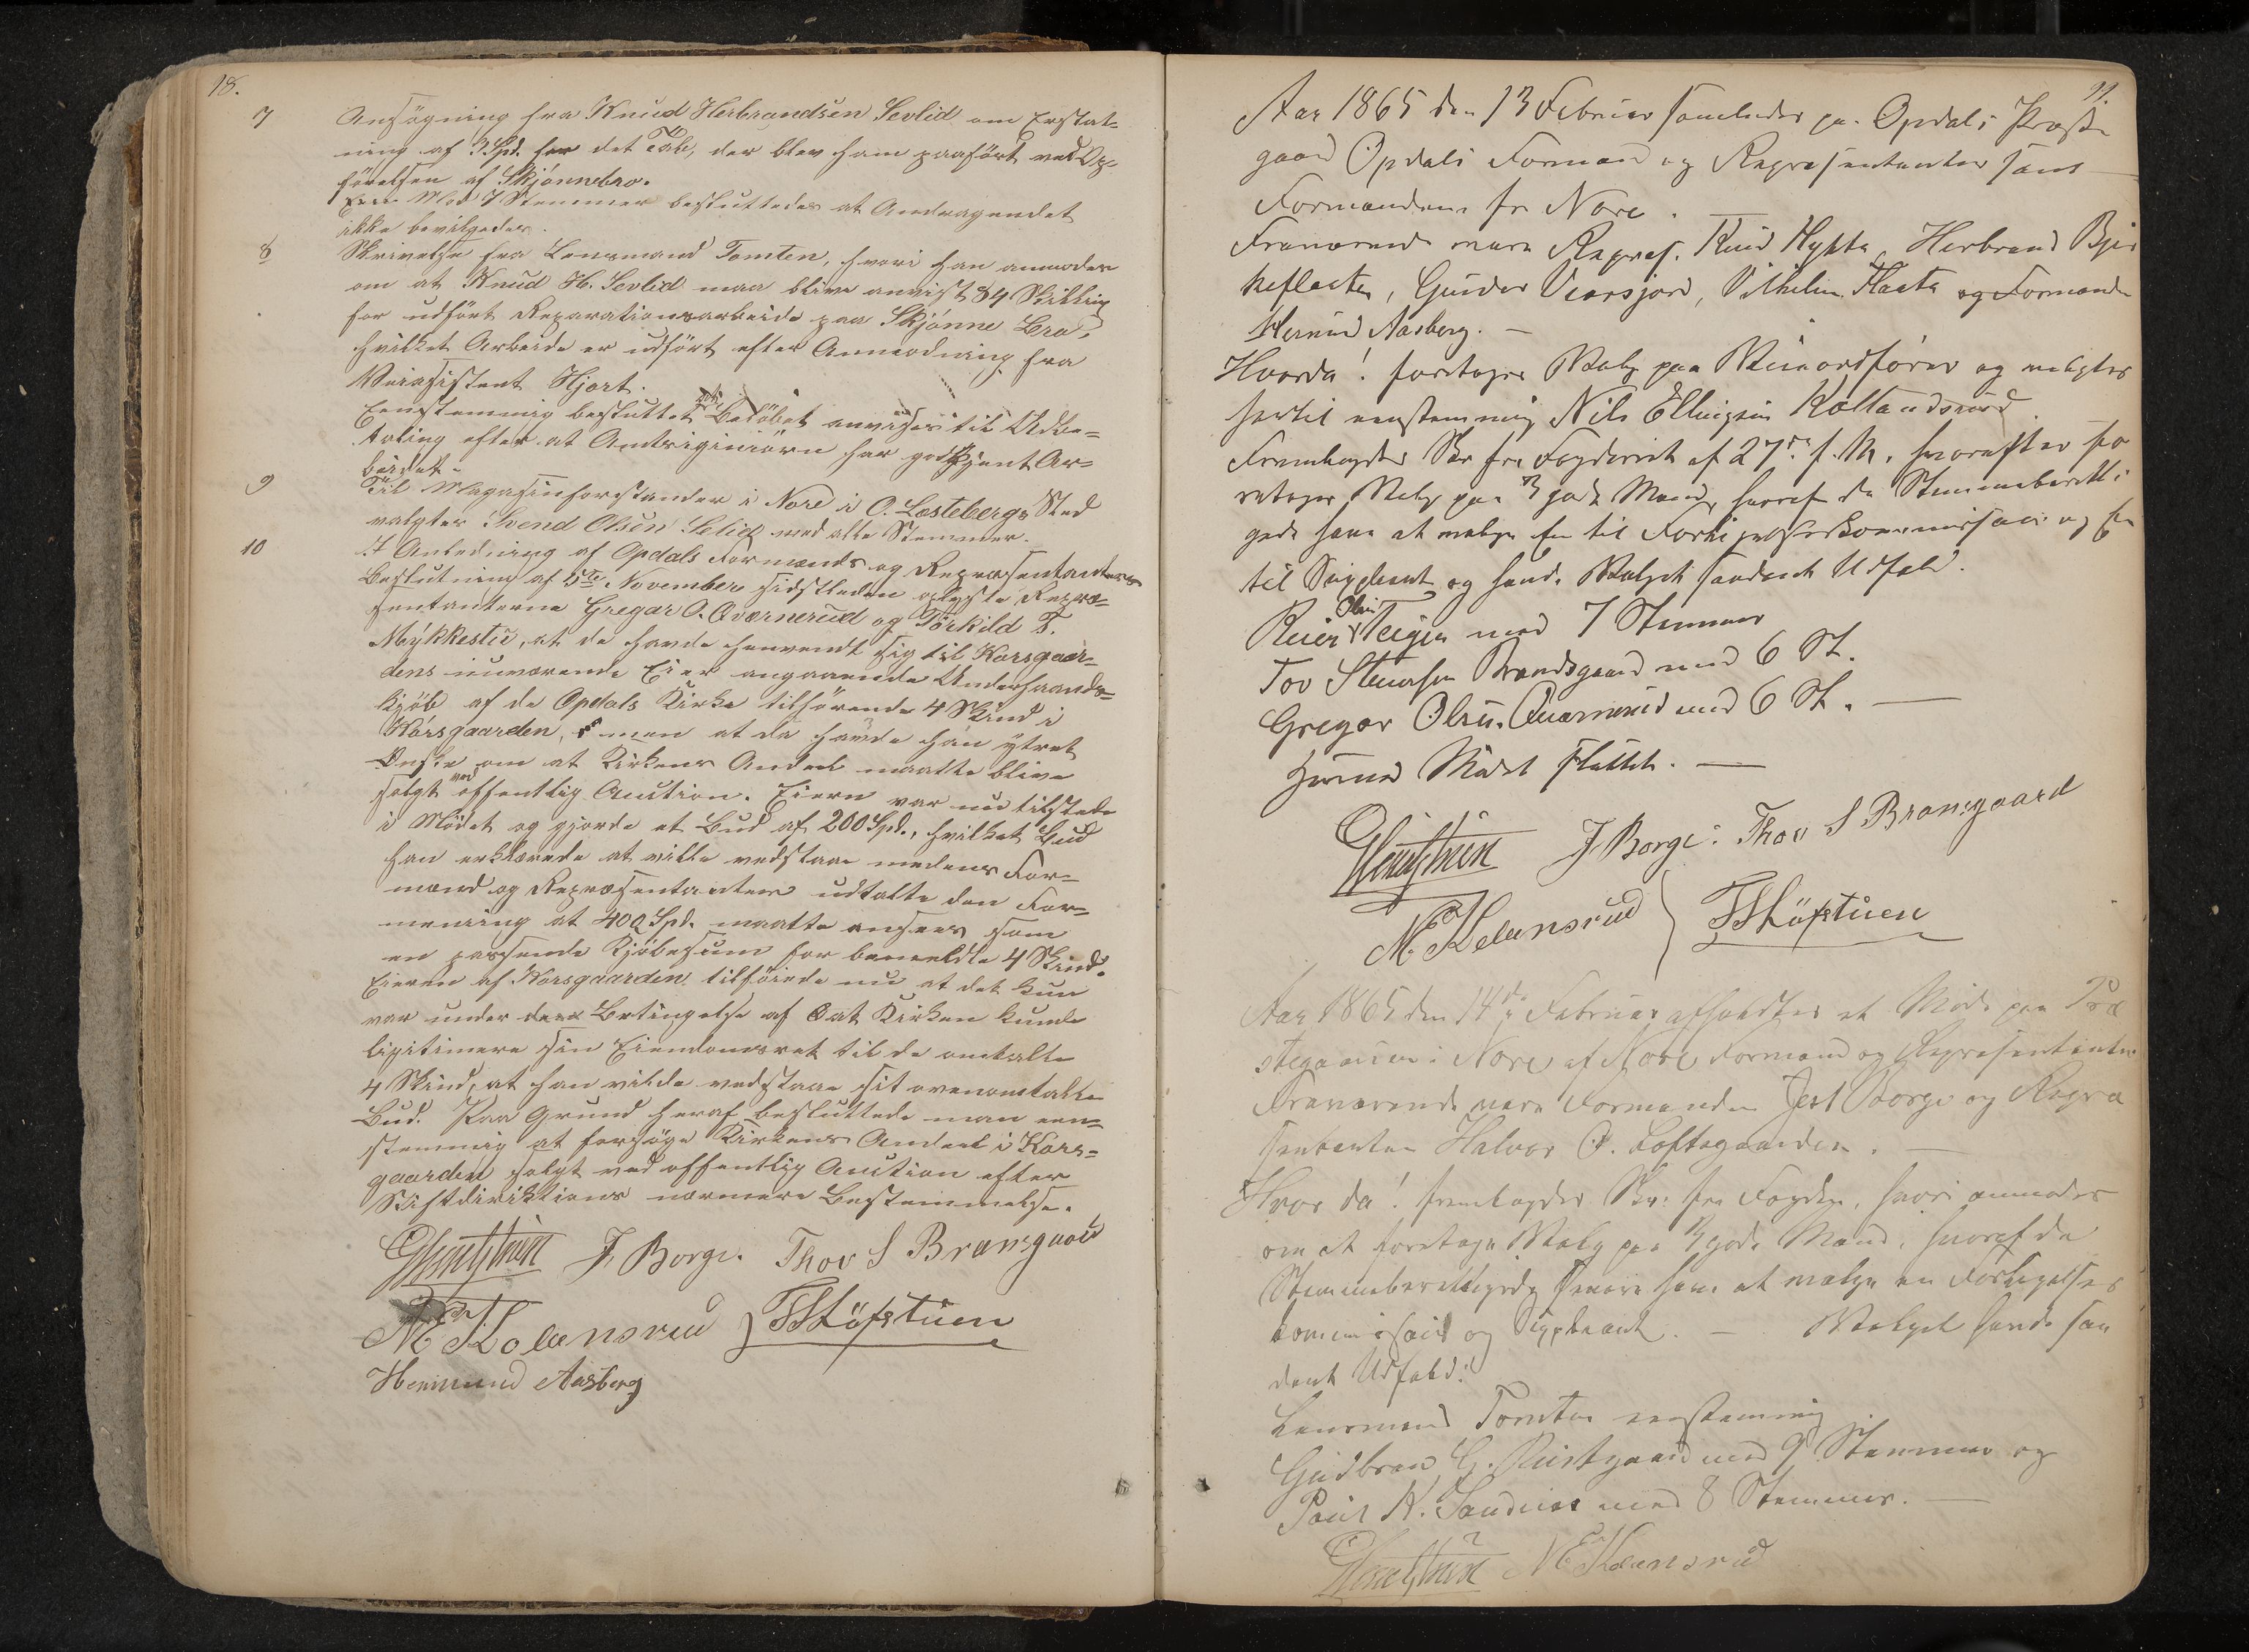 18.
7 Ansögning fra Knud Herbrandsen Sevlid om Erstat-
ning af 3 Spd. for det Tab, der blev ham paaført ved Op-
førelsen af Skjönnebro.
Med 7 Stemmer besluttedes at Andragendet
ikke bevilgedes.
8 Skrivelse fra Lensmand Tomten, hvori han anmoder
om at Knud H. Sevlid maa blive anvist 84 Skilling
for udført Reparationsarbeide paa Skjönne Bro,
hvilket Arbeide er udført efter Anmodning fra
Veiassistent Hjort.
Eenstemmig besluttet at Belöbet anvises til Udbe-
taling efter at Amtsingeniøren har godkjent Ar-
beidet.
9 Til Magasinforstander i Nore i O. Læstebergs Sted
valgtes Svend Olsen Selid med alle Stemmer.
10 I Anledning af Opdals Formænds og Repræsentanters
Beslutning af 5te November sidstleden oplyste Repræ-
sentanterne Gregar O. Qværnerud og Törkild T.
Mykkestu, at de havde henvendt sig til Korsgaar-
dens nuværende Eier angaaende Underhaands-
kjöb af de Opdals Kirke tilhørende 4 Skind i
Korsgaarden, men at da havde han ytret
Ønske om at Kirkens Andeel maatte blive
solgt ved offentlig Auction. Eieren var nu tilstede
i Mødet og gjorde et Bud af 200 Spd., hvilket Bud
han erklærede at ville vedstaae medens For-
mænd og Repræsentanter udtalte den For-
mening at 400 Spd. maatte ansees som
en passende Kjöbesum for bemeldte 4 Skind.
Eieren af Korsgaarden tilføiede nu at det kun
var under Betingelse af at Kirken kunde
legitimere sin Eiendomsret til de omtalte
4 Skind, at han vilde vedstaae sit ovenomtalte
Bud. Paa Grund heraf besluttede man een-
stemmig at forsöge Kirkens Andeel i Kors-
gaarden solgt ved offentlig Auction efter
Stiftdirektionens nærmere Bestemmelse.
J. Borge. Thov S Bransgaard
Hermund Aasberg
Aar 1865 den 13 Februar samledes paa Opdals Præste
gaard Opdals Formænd og Repræsentanter samt
Formændene fra Nore.
Fraværende vare Repræs. Knud Herbrand
Gunder Vilhelm og Formand
Hermund Aasberg. —
Hvorda! foretoges Valg paa Viceordfører og valgtes
hertil eenstemmig Nils Ellingsen
Fremlagdes Skr fra Fogderiet af 27de f. M. hvorefter fo
retoges Valg paa 3 gode Mænd, hvoraf de Stemmeberetti
gede have at vælge En til Forligelseskommissair og En
til Suppleant og havde Valget saadant Udfald.
Reier Olsen Teigen med 7 Stemmer
Tov Stenersen Brandsgaard med 6 St.
Gregar Olsen Quærnerud med 6 St. —
Hermed Mödet sluttet. —
J Borge. Thov S Bransgaard
Aar 1865 den 14de Februar afholdtes et Möde paa Præ
stegaarden i Nore af Nore Formænd og Repræsentanter
Fraværende vare Formanden Borge og Repræ
sentanten Halvor O. Loftsgaarden. —
Hvor da! fremlagdes Skr. fra Fogden, hvori anmodes
om at foretage Valg paa 3 gode Mænd, hvoraf de
Stemmeberettigede senere have at vælge en Forligelses
kommissair og Suppleant. — Valget havde saa
dant Udfald:
Lensmand Tomten eenstemmig
Gudbran G. Rustgaard med 9 Stemmer og
Poul K. med 8 Stemmer. —